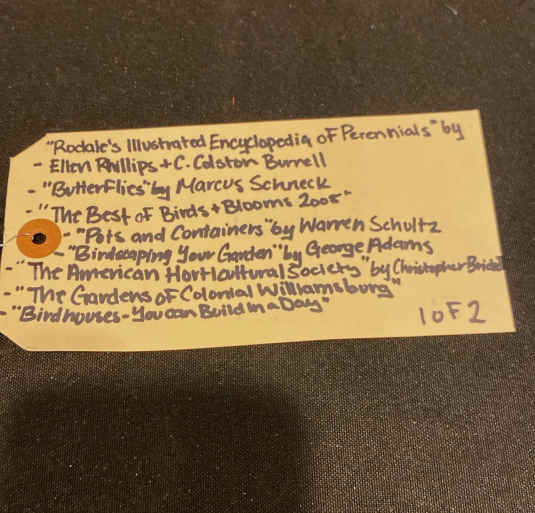 "Rodale's Illustrated Encyclopedia of Perennials" by
- Ellen Phillips + C. Colston Burrell
- "Butterflies" by Marcus Schneck
- "The Best of Birds + Blooms 2005"
- "Pots and Containers" by Warren Schultz
- "Birdscaping Your Garden" by George Adams
- "The American Horticultural Society" by Christopher
- "The Gardens of Colonial Williamsburg"
- "Birdhouses - You can Build in a Day"
1 of 2